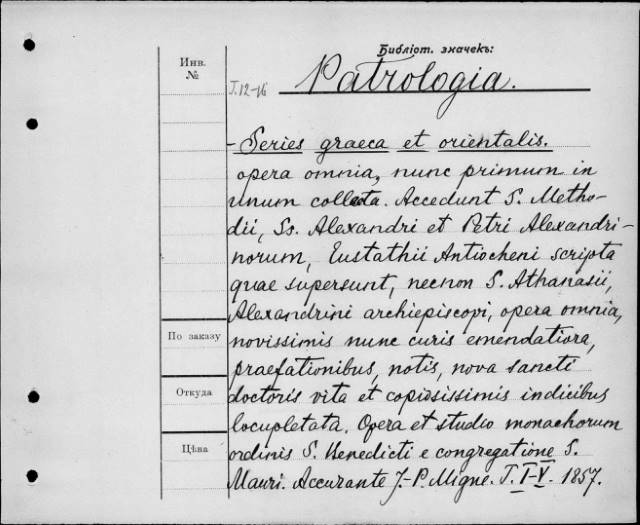 Библіот. значекъ:
Инв.
№
T. 12-16
Patrologia.
- Series graeca et orientalis.
opera omnia, nunc primum in
unum collecta. Accedunt S. Metho-
dii, Ss. Alexandri et Petri Alexandri-
norum, Eustathii Antiocheni scripta
quae supersunt, necnon S. Athanasii,
Alexandrini archiepiscopi, opera omnia,
novissimis nunc curis emendatiora,
По заказу
praefationibus, notis, nova sancti
Откуда
doctoris vita et copiosissimis indicibus
locupletata. Opera et studio monachorum
Цѣна
ordinis S. Benedicti e congregatione S.
Mauri. Accurante J.-P. Migne. T. I-V. 1857.